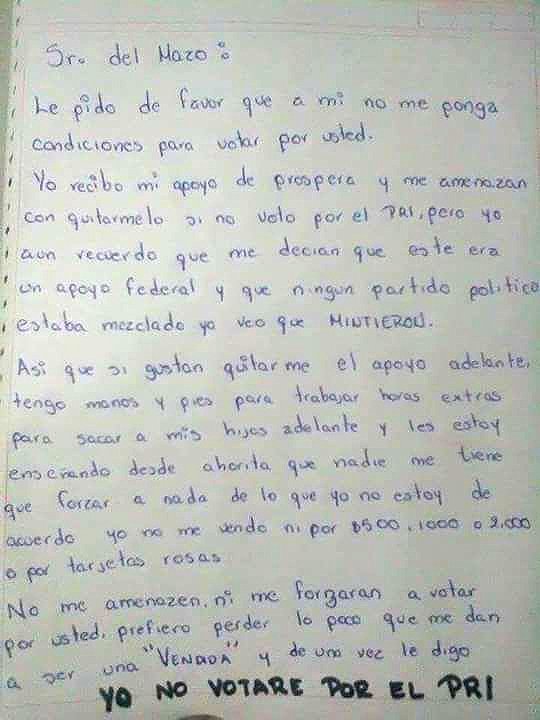 Sr. del Mazo :
Le pido de favor que a mi no me ponga
condiciones para votar por usted.
Yo recibo mi apoyo de prospera y me amenazan
con quitarmelo si no voto por el PRI, pero yo
aun recuerdo que me decian que este era
un apoyo federal y que ningun partido politico
estaba mezclado ya veo que MINTIERON.
Asi que si gustan quitarme el apoyo adelante,
tengo manos y pies para trabajar horas extras
para sacar a mis hijos adelante y les estoy
enseñando desde ahorita que nadie me tiene
que forzar a nada de lo que yo no estoy de
acuerdo yo no me vendo ni por $500, 1000 o 2,000
o por tarjetas rosas
No me amenazen, ni me forzaran a votar
por usted, prefiero perder lo poco que me dan
a ser una "VENDIDA" y de una vez le digo
YO NO VOTARE POR EL PRI